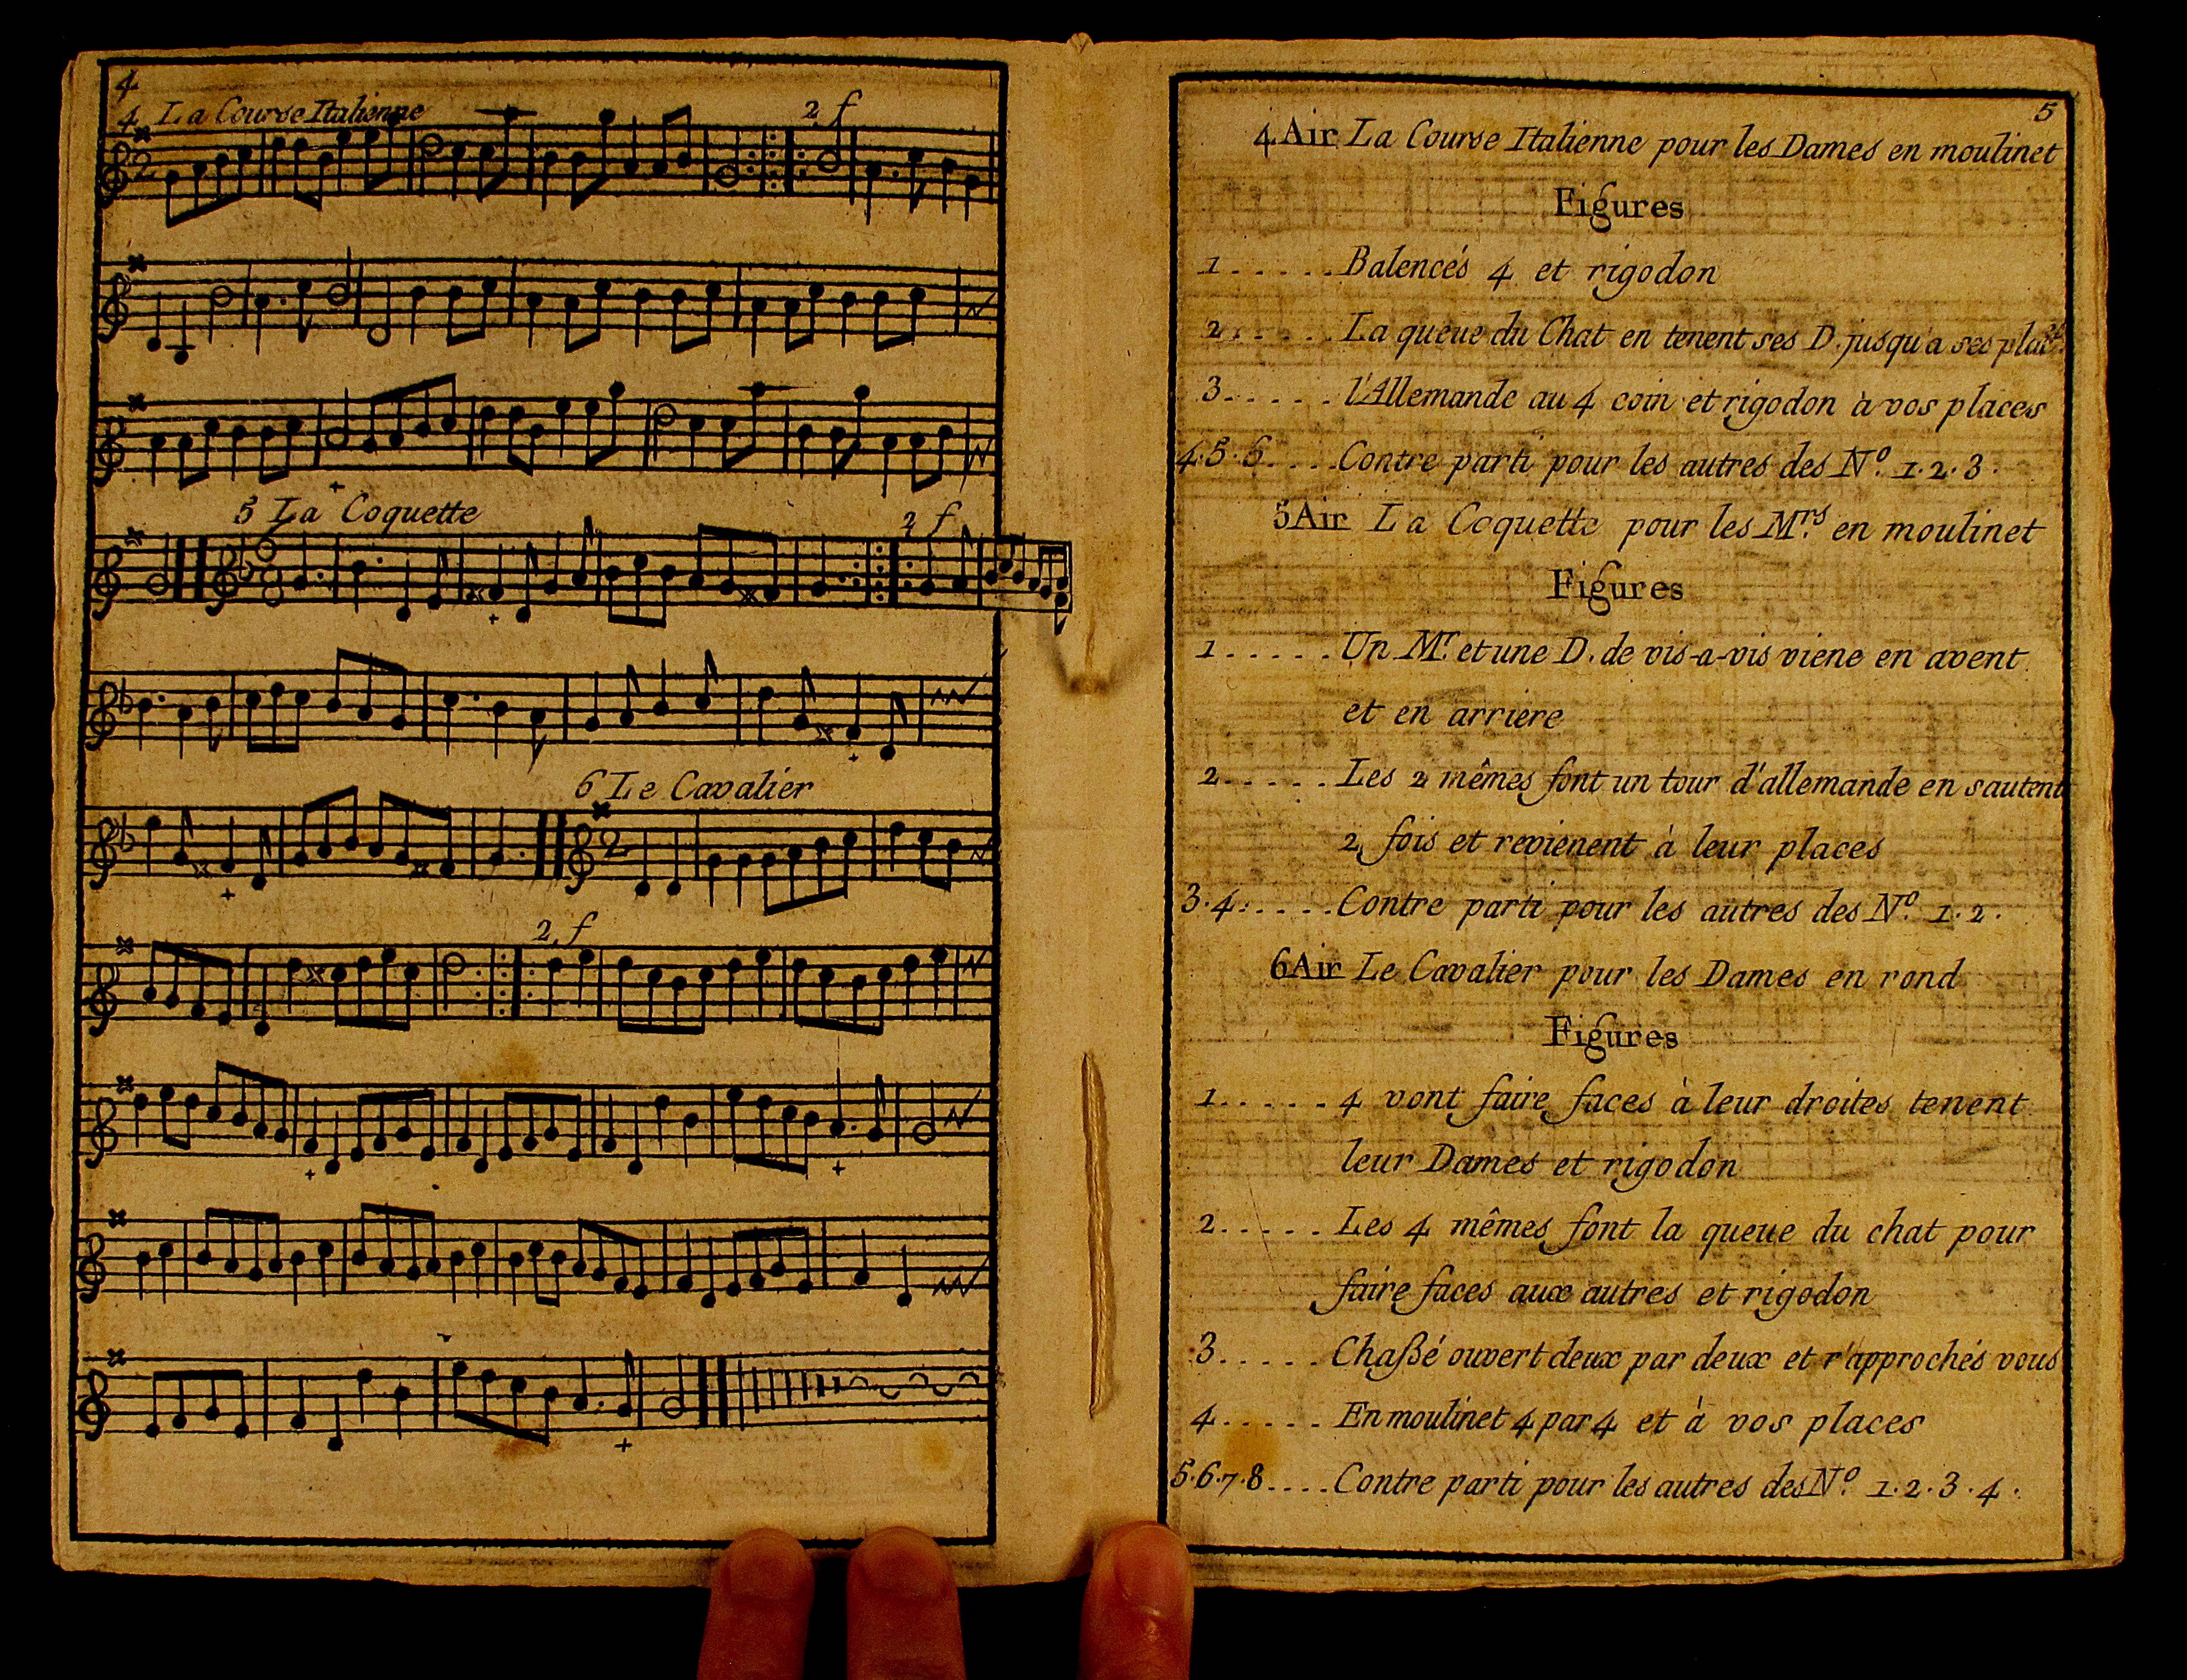 4
4 La Course Italienne
2 f
5 La Coquette
2 f
6 Le Cavalier
2 f
5
4 Air La Course Italienne pour les Dames en moulinet
Figures
1. . . . . Balencés 4 et rigodon
2. . . . . La queue du Chat en tenent ses D. jusqu'a ses
3. . . . . l'Allemande au 4 coin et rigodon à vos places
4.5.6. . . . Contre parti pour les autres des Nº. 1.2.3.
5 Air La Coquette pour les Mrs. en moulinet
Figures
1. . . . . Un Mr. et une D. de vis-a-vis viene en avent
et en arriere
2. . . . . Les 2 mêmes font un tour d'allemande en sautent
2 fois et revienent à leur places
3.4. . . . . Contre parti pour les autres des Nº. 1.2.
6 Air Le Cavalier pour les Dames en rond
Figures
1. . . . . 4 vont faire faces à leur droites tenent
leur Dames et rigodon
2. . . . . Les 4 mêmes font la queue du chat pour
faire faces aux autres et rigodon
3. . . . . Chaßé ouvert deux par deux et r'approchés vous
4. . . . . En moulinet 4 par 4 et à vos places
5.6.7.8. . . . Contre parti pour les autres des Nº. 1.2.3.4.